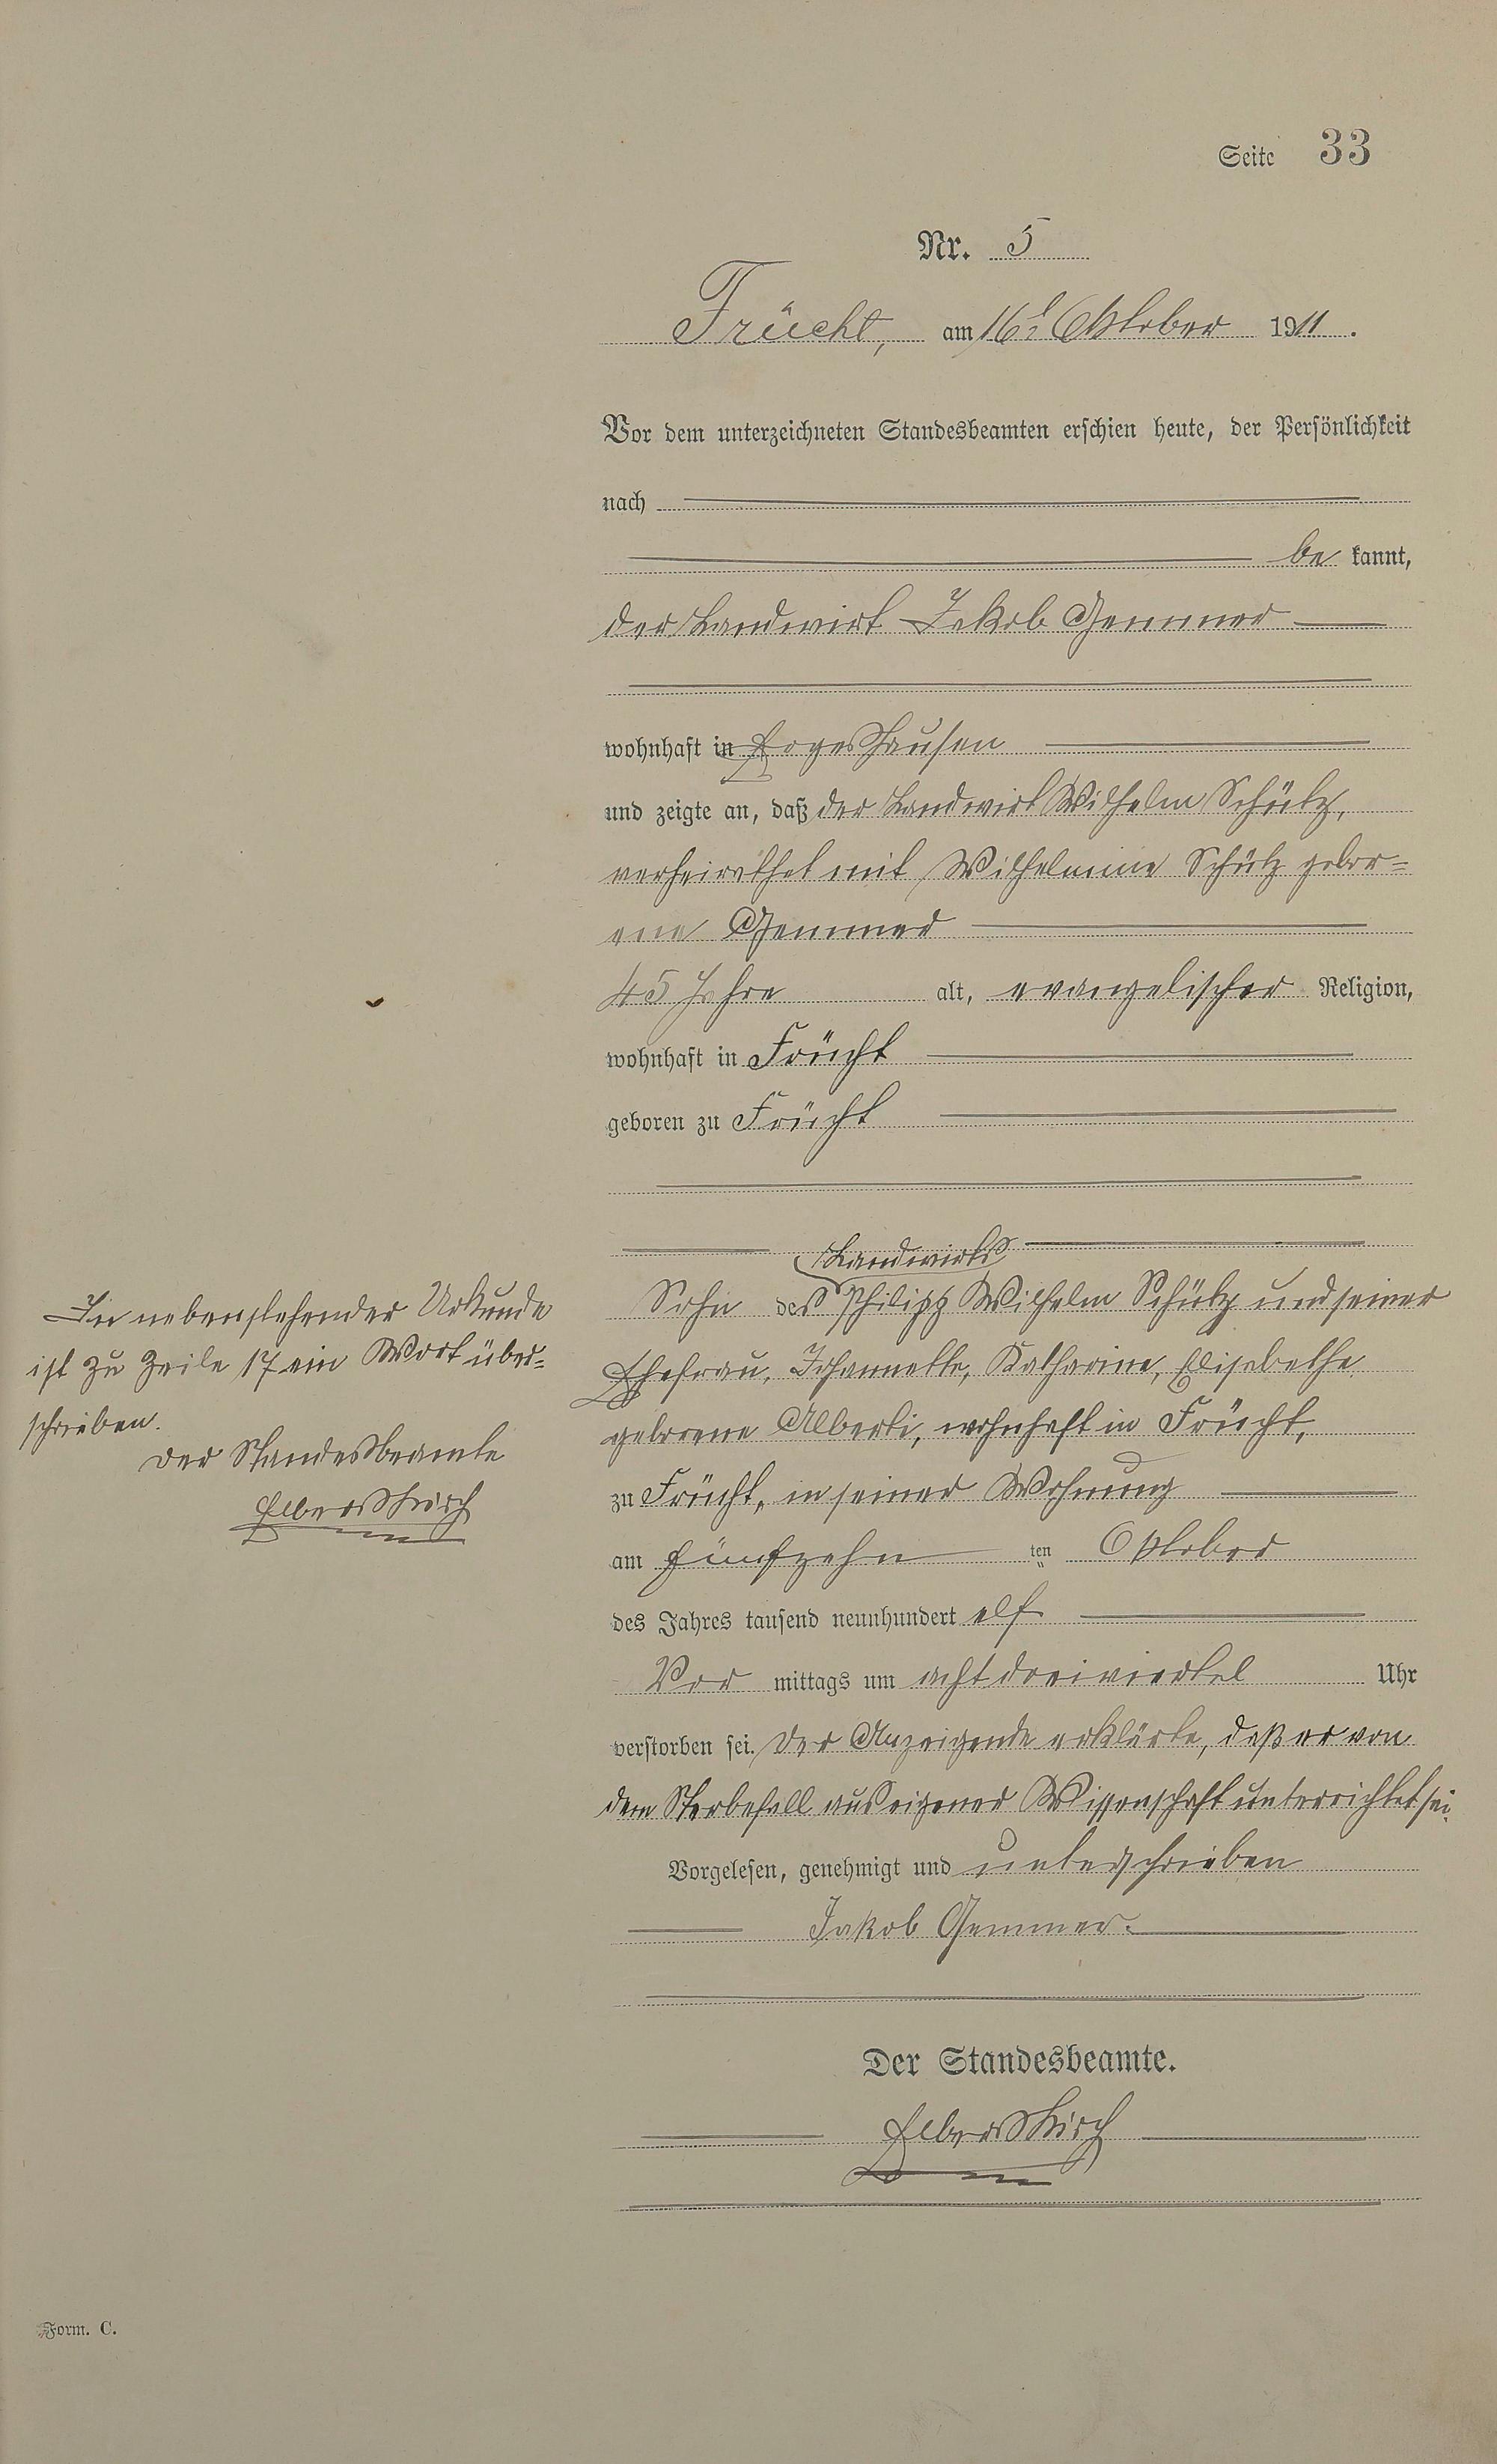 Seite 33
Nr. 5
Frücht, am 16. Oktober 1911.
Vor dem unterzeichneten Standesbeamten erschien heute, der Persönlichkeit
nach
be kannt,
der Landwirt Jakob Gemmer
wohnhaft in Ergeshausen
und zeigte an, daß der Landwirt Wilhelm Schütz,
verheirathet mit Wilhelmine Schütz gebor=
ene Gemmer
45 Jahre alt, evangelischer Religion,
wohnhaft in Frücht
geboren zu Frücht
Landwirts
Sohn des Philipp Wilhelm Schütz und seiner
Ehefrau, Johannette, Katharine, Elisabethe
geborene Alberti, wohnhaft in Frücht,
zu Frücht, in seiner Wohnung
am fünfzehn ten Oktober
des Jahres tausend neunhundert elf
Vor mittags um acht dreiviertel Uhr
verstorben sei. Der Anzeigende erklärte, daß er von
dem Sterbefall aus eigener Wissenschaft unterrichtet sei.
Vorgelesen, genehmigt und unterschrieben
Jakob Gemmer.
Der Standesbeamte.
Elberskirch
In nebenstehender Urkunde
ist zu Zeile 17 ein Wort über=
schrieben.
Der Standesbeamte
Elberskirch
Form. C.